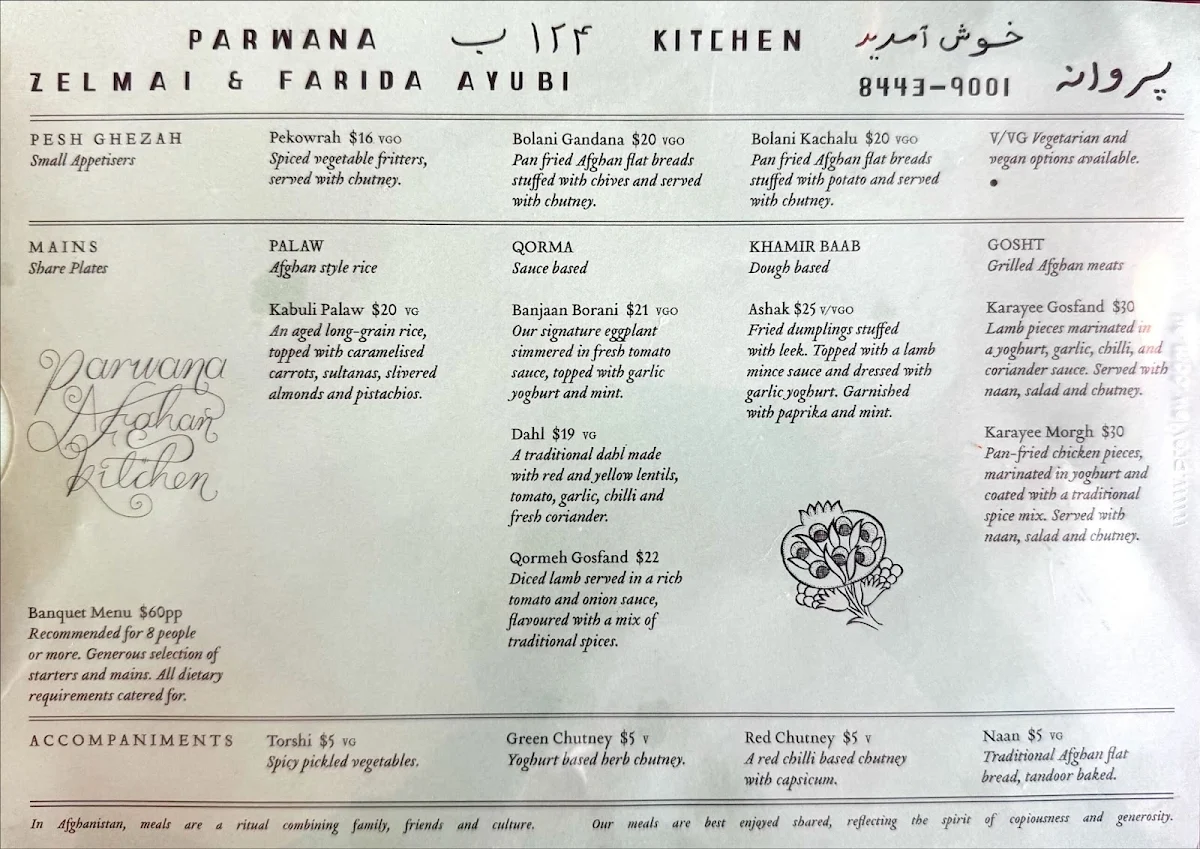 PARWANA ١٢۴ ب KITCHEN خوش آمدید
ZELMAI & FARIDA AYUBI 8443-9001 پروانه
PESH GHEZAH
Small Appetisers
Pekowrah $16 VGO
Spiced vegetable fritters,
served with chutney.
Bolani Gandana $20 VGO
Pan fried Afghan flat breads
stuffed with chives and served
with chutney.
Bolani Kachalu $20 VGO
Pan fried Afghan flat breads
stuffed with potato and served
with chutney.
V/VG Vegetarian and
vegan options available.
MAINS
Share Plates
Parwana
Afghan
kitchen
Banquet Menu $60pp
Recommended for 8 people
or more. Generous selection of
starters and mains. All dietary
requirements catered for.
PALAW
Afghan style rice
Kabuli Palaw $20 VG
An aged long-grain rice,
topped with caramelised
carrots, sultanas, slivered
almonds and pistachios.
QORMA
Sauce based
Banjaan Borani $21 VGO
Our signature eggplant
simmered in fresh tomato
sauce, topped with garlic
yoghurt and mint.
Dahl $19 VG
A traditional dahl made
with red and yellow lentils,
tomato, garlic, chilli and
fresh coriander.
Qormeh Gosfand $22
Diced lamb served in a rich
tomato and onion sauce,
flavoured with a mix of
traditional spices.
KHAMIR BAAB
Dough based
Ashak $25 V/VGO
Fried dumplings stuffed
with leek. Topped with a lamb
mince sauce and dressed with
garlic yoghurt. Garnished
with paprika and mint.
GOSHT
Grilled Afghan meats
Karayee Gosfand $30
Lamb pieces marinated in
a yoghurt, garlic, chilli, and
coriander sauce. Served with
naan, salad and chutney.
Karayee Morgh $30
Pan-fried chicken pieces,
marinated in yoghurt and
coated with a traditional
spice mix. Served with
naan, salad and chutney.
ACCOMPANIMENTS
Torshi $5 VG
Spicy pickled vegetables.
Green Chutney $5 V
Yoghurt based herb chutney.
Red Chutney $5 V
A red chilli based chutney
with capsicum.
Naan $5 VG
Traditional Afghan flat
bread, tandoor baked.
In Afghanistan, meals are a ritual combining family, friends and culture. Our meals are best enjoyed shared, reflecting the spirit of copiousness and generosity.